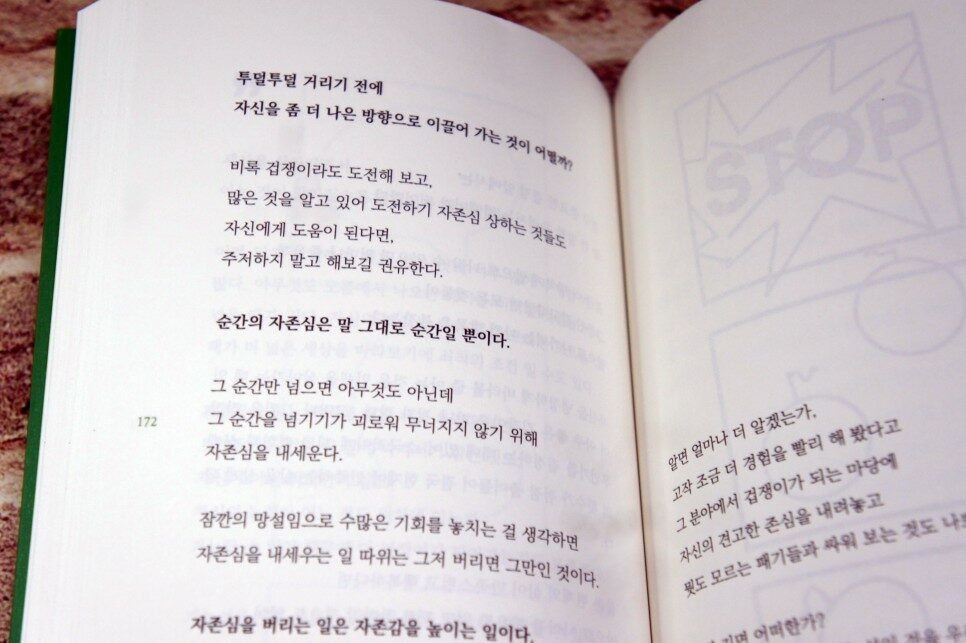 투덜투덜 거리기 전에
자신을 좀 더 나은 방향으로 이끌어 가는 것이 어떨까?
비록 겁쟁이라도 도전해 보고,
많은 것을 알고 있어 도전하기 자존심 상하는 것들도
자신에게 도움이 된다면,
주저하지 말고 해보길 권유한다.
순간의 자존심은 말 그대로 순간일 뿐이다.
그 순간만 넘으면 아무것도 아닌데
그 순간을 넘기기가 괴로워 무너지지 않기 위해
자존심을 내세운다.
잠깐의 망설임으로 수많은 기회를 놓치는 걸 생각하면
자존심을 내세우는 일 따위는 그저 버리면 그만인 것이다.
자존심을 버리는 일은 자존감을 높이는 일이다.
172
STOP
알면 얼마나 더 알겠는가,
고작 조금 더 경험을 빨리 해 봤다고
그 분야에서 겁쟁이가 되는 마당에
자신의 견고한 존심을 내려놓고
뭣도 모르는 패기들과 싸워 보는 것도
어떠한가?